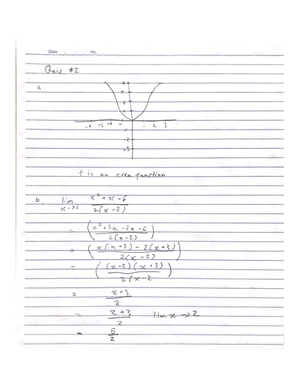 Date No.
Quiz #2
f is an even function
b. lim x→2 x² + x - 6 / 2(x - 2)
= (x² + 3x - 2x - 6 / 2(x - 2))
= (x(x + 3) - 2(x + 3) / 2(x - 2))
= ((x - 2)(x + 3) / 2(x - 2)
= x + 3 / 2
= 2 + 3 / 2 lim x → 2
= 5 / 2